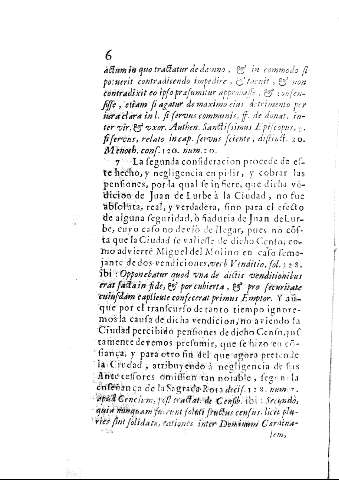 6
actum in quo tractatur de damno, & in commodo si
potuerit contradicendo impedire, & tacuit, & non
contradixit eo ipso præsumitur approbasse, & consen-
sisse, etiam si agatur de maximo eius detrimento per
iura clara in l. si servus communis, ff. de donat. in-
ter vir. & uxor. Authen. Sanctissimus Episcopus,
si servus, relato in cap. servus sciente, distinct. 20.
Menoch. cons. 120. num. 20.
7 La segunda consideracion procede de es-
te hecho, y negligencia en pidir, y cobrar las
pensiones, por la qual se infiere, que dicha ve-
dicion de Juan de Lurbe à la Ciudad, no fue
absoluta, real, y verdadera, sino para el efecto
de alguna seguridad, ò fiaduria de Juan de Lur-
be, cuyo caso no devio de llegar, pues no cõs-
ta que la Ciudad se valiesse de dicho Censo, co-
mo advierte Miguel del Molino en caso seme-
jante de dos vendiciones, verb. Venditio, fol. 328.
ibi: Opponebatur quod una de dictis venditionibus
erat facta in fide, & por cubierta, & pro securitate
cuiusdam capsieute consecerat primus Emptor. Y aũ-
que por el transcurso de tanto tiempo ignore-
mos la causa de dicha vendicion, no aviendo la
Ciudad percibido pensiones de dicho Censo, jus-
tamente devemos presumir, que se hizo en cõ-
fiança, y para otro fin del que agora pretende
la Ciudad, atribuyendo à negligencia de sus
Antecessores omission tan notable, segun la
enseñança de la Sagrada Rota decis. 128. num. 7.
apud Cencium, post tractat. de Censib. ibi: Secundò,
quia nunquam fuerunt soluti fructus census, licet plu-
ries sint solidata, rationes inter Dominum Cardina-
lem,